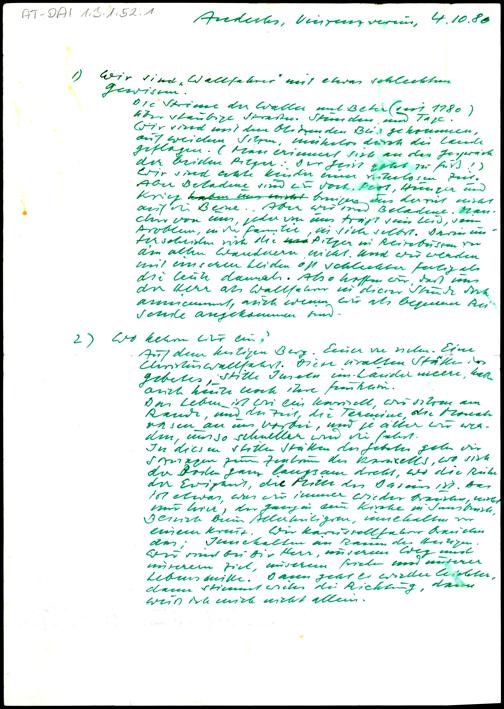 AT-DAI 1.3.1.52.1
Andechs, Vinzenzverein, 4.10.80
1) Wir sind „Wallfahrer" mit etwas schlechtem
Gewissen.
Die Ströme der Waller und Beter (seit 1180)
über staubige Straßen. Stunden und Tage.
Wir sind mit dem Bus gekommen,
auf weichen Sitzen, mühelos durch die Lande
geflogen. (Man erinnert sich an das Gespräch
der beiden Pilger: Der geht zu Fuß!)
Wir sind echte Kinder einer Zeit.
Aber Beladene sind wir doch. Pest, Hunger und
Krieg bringen uns derzeit nicht
auf die Beine. Aber wir sind Beladene. Man-
cher von uns, jeder von uns trägt sein Leid, sein
Problem, in der Familie, in sich selbst. Darin un-
terscheiden sich die Pilger im Reisebus von
den alten Wanderern nicht. Und wir werden
mit unseren Leiden oft schlechter fertig als
die Leute damals. Also hoffen wir, daß uns
der Herr als Wallfahrer in dieser Stunde doch
annimmt, auch wenn wir als bequeme Rei-
sende angekommen sind.
2) Wo kehren wir ein?
Auf dem heiligen Berg. Einer von vielen. Eine
Christuswallfahrt. Diese uralten Stätten des
Gebetes, stille Inseln im Ländermeere, haben
auch heute noch ihre Funktion.
Das Leben ist wie ein Karussell, wir sitzen am
Rande, und die Zeit, die Termine, die Monate
rasen an uns vorbei, und je älter wir wer-
den, umso schneller wird die Fahrt.
In diesen stillen Stätten des Gebetes gehen wir
sozusagen zum Zentrum des Karussells, wo sich
der Boden ganz langsam dreht, wo die Ruhe
der Ewigkeit, die Mitte des Daseins ist. Das
ist etwas, was wir immer wieder brauchen,
und wir, die ganzen Kirche in Innsbruck,
Besuch beim Allerheiligsten, innehalten vor
einem Kreuz. Wir Karussellfahrer brauchen
das: Innehalten am Raum des Heiligen.
Wir sind bei Dir Herr, unserem Weg und
unserem Ziel, unserem Frieden und unserer
Lebensmitte. Dann geht es wieder leichter,
dann stimmt wieder die Richtung, dann
weiß ich mich nicht allein.